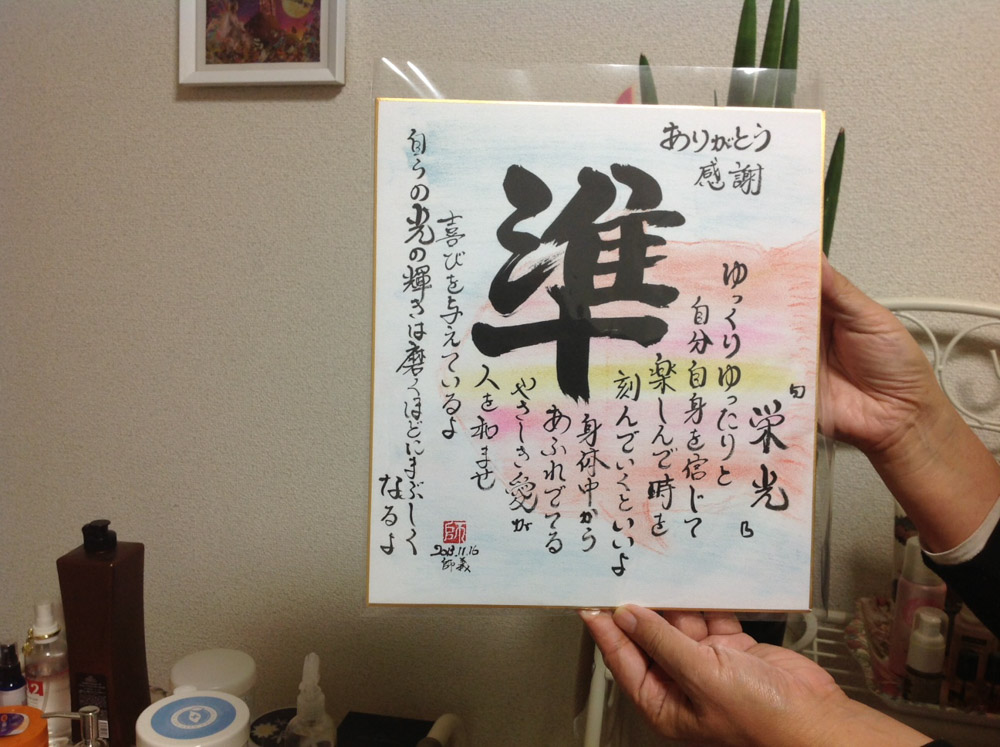 ありがとう
感謝
準
栄光
ゆっくりゆったりと
自分自身を信じて
楽しんで時を
刻んでいくといいよ
身体中から
あふれでてる
やさしき愛が
人を和ませ
喜びを与えているよ
自らの光の輝きは磨くほどにまぶしく
なるよ
師
2013.11.16
師義
2